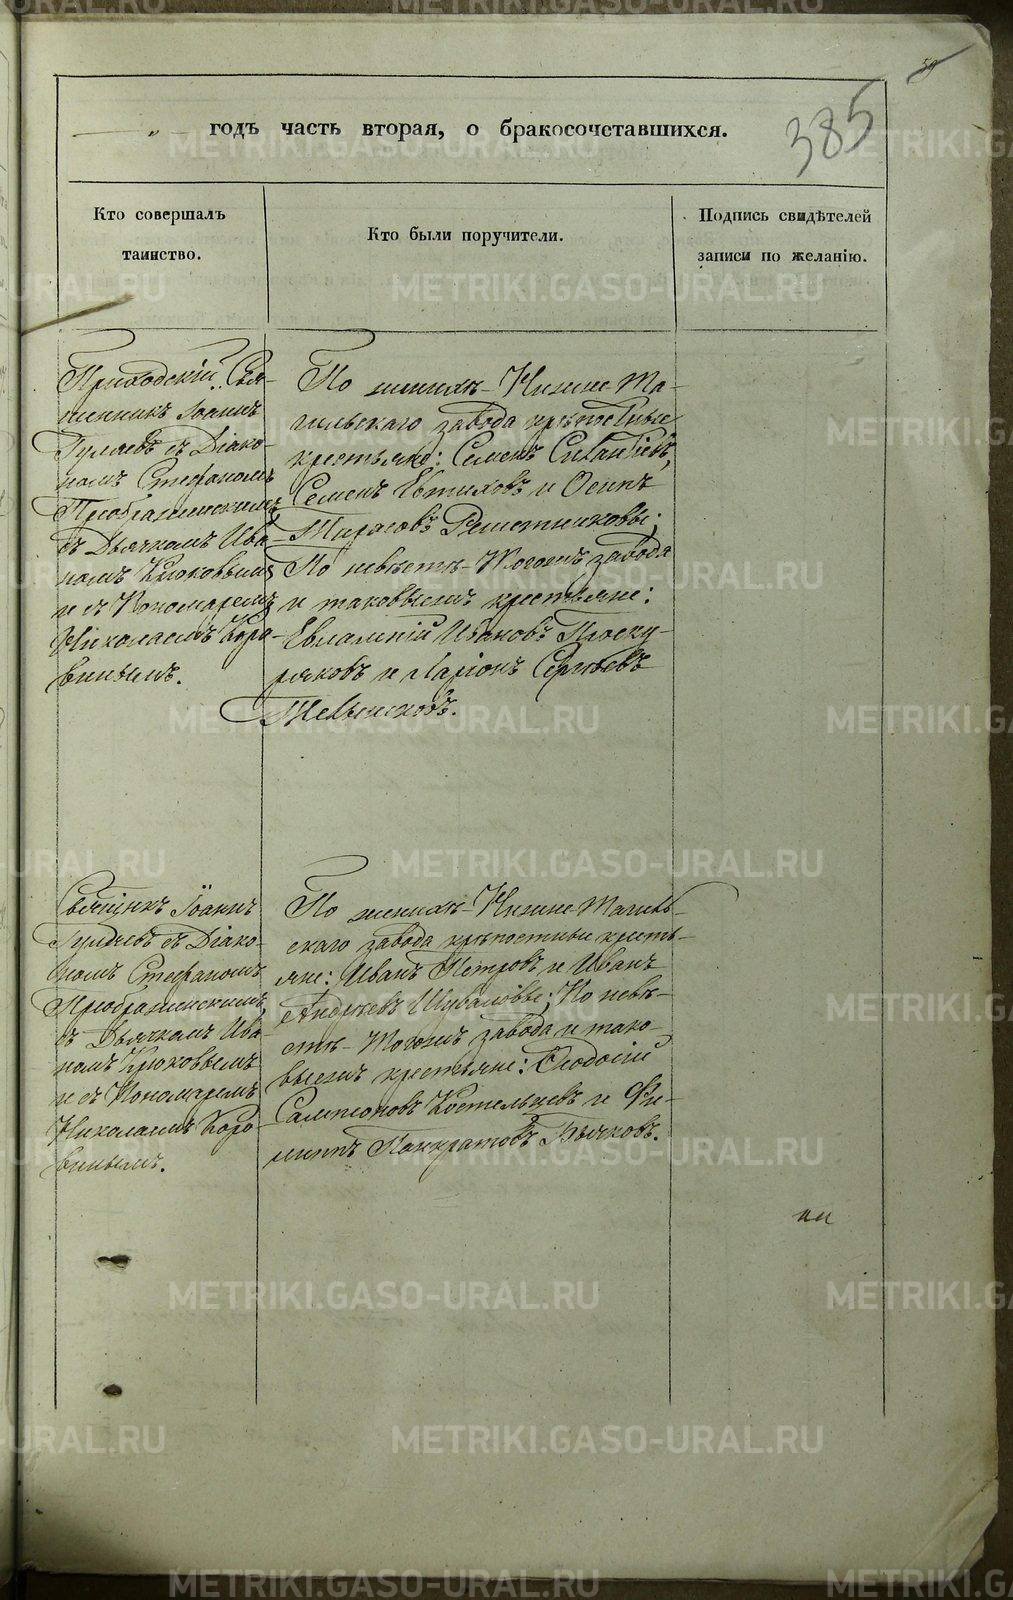 385
— „ — годъ часть вторая, о бракосочетавшихся.
Кто совершалъ
таинство.
Кто были поручители.
Подпись свидѣтелей
записи по желанію.
Приходскій Свя-
щенникъ Іоаннъ
Гуляевъ съ Діако-
номъ Стефаномъ
Преображенскимъ,
съ Дьячкомъ Ива-
номъ Крюковымъ
и съ Пономаремъ
Николаемъ Коро-
винымъ.
По женихѣ - Нижне Та-
гильскаго завода крѣпостные
крестьяне: Семенъ
Семенъ Евтиховъ и Осипъ
Тарасовъ Решетниковы;
По невѣстѣ - Тогожъ завода
и таковыежъ крестьяне:
Евлампій Ивановъ Проску-
ряковъ и Ларіонъ Сергѣевъ
Священикъ Іоаннъ
Гуляевъ съ Діако-
номъ Стефаномъ
Преображенскимъ,
съ Дьячкомъ Ива
номъ Крюковымъ
и съ Пономаремъ
Николаемъ Коро-
винымъ.
По женихѣ - Нижне Тагиль-
скаго завода крѣпостные кресть-
яне: Иванъ Петровъ и Иванъ
Андреевъ Шуваловы; По невѣ-
стѣ - Тогожъ завода и тако-
выежъ крестьяне: Ѳеодосій
Сампсоновъ Костельцевъ и Фи-
липпъ Панкратовъ Бычковъ.
METRIKI.GASO-URAL.RU